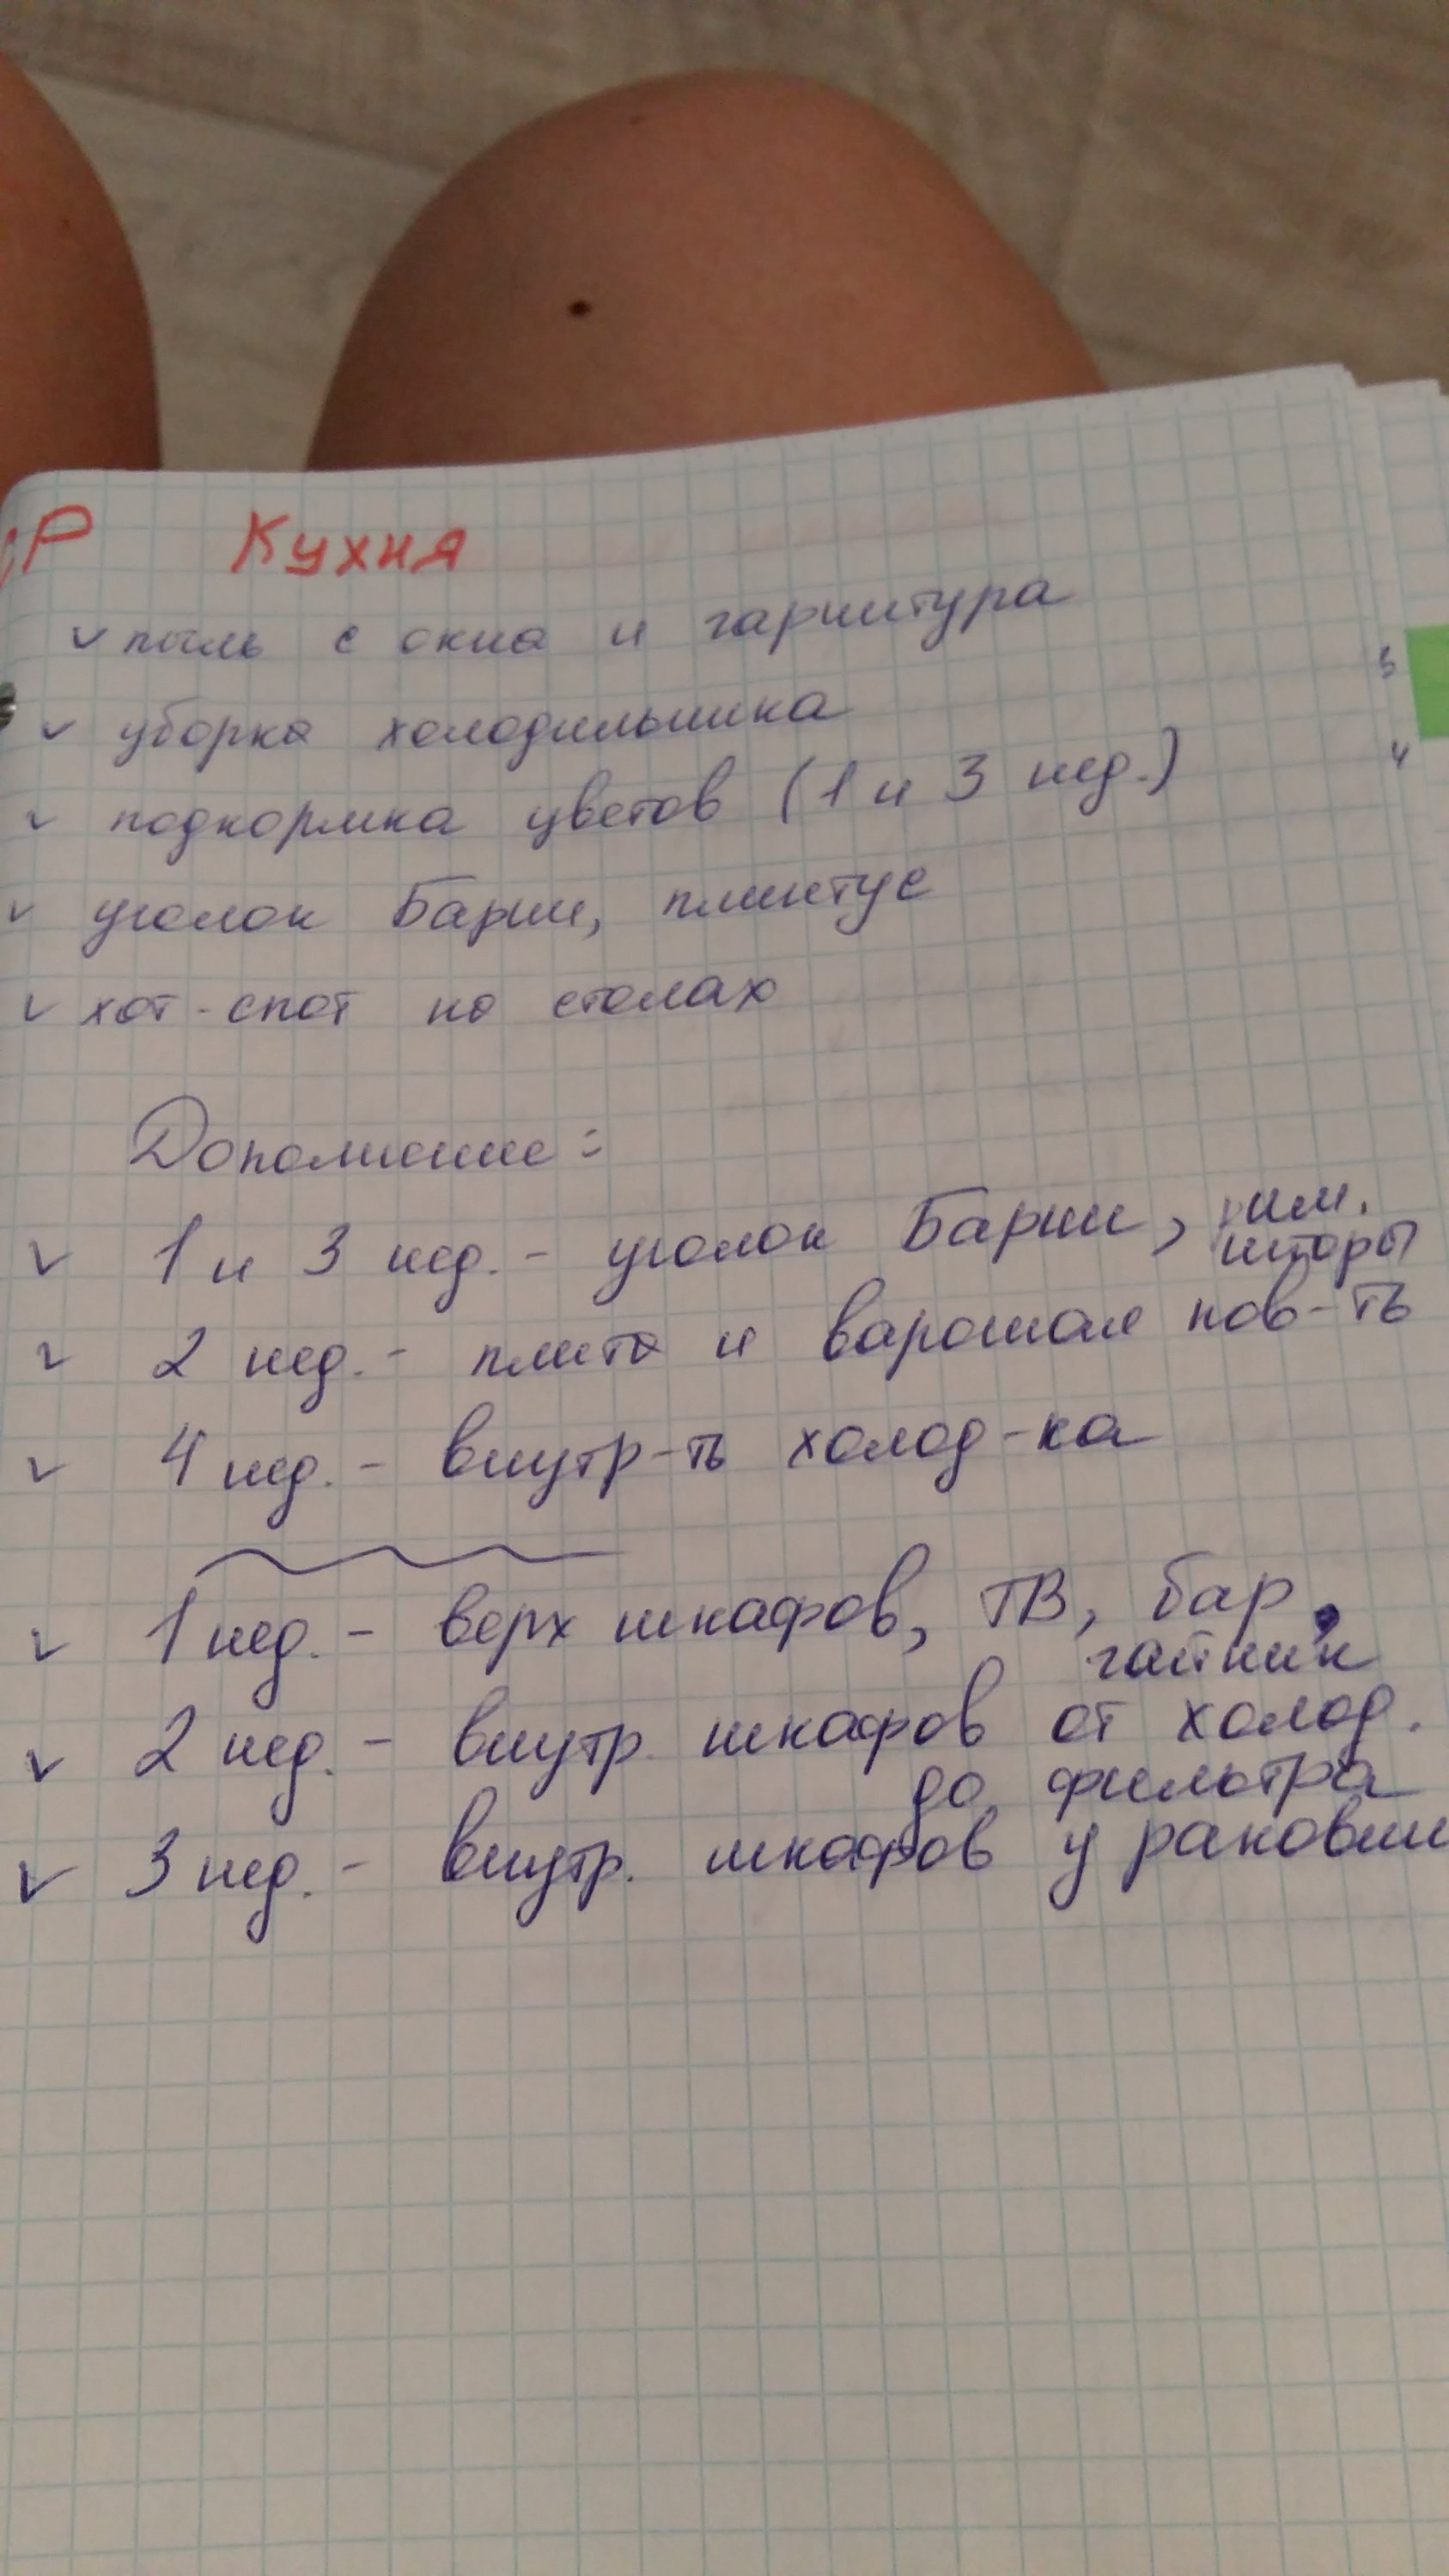 СР Кухня
✓ пыль с окна и гарнитура
✓ уборка холодильника
✓ подкормка цветов (1 и 3 нед.)
✓ уголок Барни, плинтус
✓ хот-спот на столах
Дополнение:
✓ 1 и 3 нед. - уголок Барни,
шторы
✓ 2 нед. - плита и варочная пов-ть
✓ 4 нед. - внутр-ть холод-ка
✓ 1 нед. - верх шкафов, ТВ, бар,
чайник
✓ 2 нед. - внутр. шкафов от холод.
до фильтра
✓ 3 нед. - внутр. шкафов у раковины
3
4